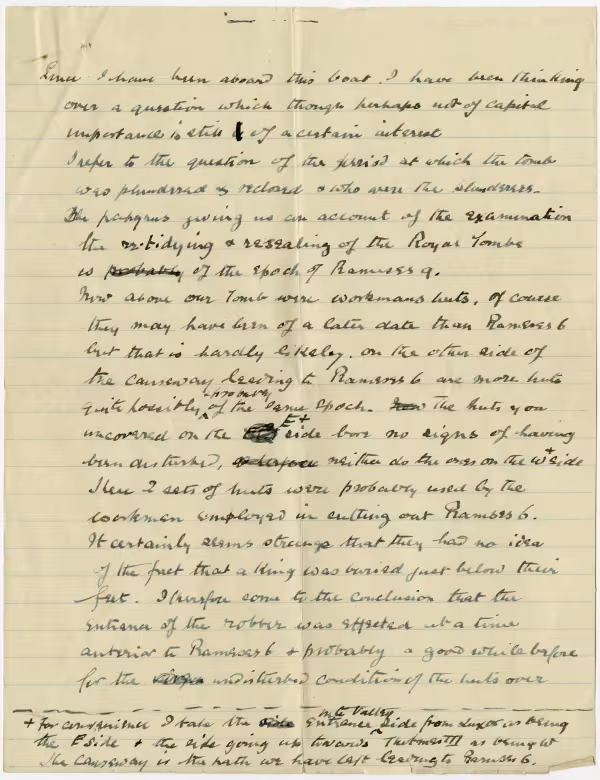 Since I have been aboard this boat. I have been thinking
over a question which though perhaps not of capital
importance is still of a certain interest
I refer to the question of the period at which the tomb
was plundered & reclosed & who were the plunderers.
The papyrus giving us an account of the examination
the re-tidying & resealing of the Royal Tombs
is probably of the Epoch of Rameses 9.
Now above our Tomb were workmans huts, of course
they may have been of a later date than Rameses 6
but that is hardly likely. On the other side of
the causeway leading to Rameses 6 are more huts
quite possibly probably of the same Epoch. Now the huts you
uncovered on the E+ side bore no signs of having
been disturbed, neither do the ones on the W+ side
These 2 sets of huts were probably used by the
workmen employed in cutting out Rameses 6.
It certainly seems strange that they had no idea
of the fact that a King was buried just below their
feet. I therefore come to the conclusion that the
entrance of the robber was effected at a time
anterior to Rameses 6 & probably a good while before
for the undisturbed condition of the huts over
+ For convenience I take the side entrance into Valley side from Luxor as being
the E side & the side going up towards Thotmes III as being W
The causeway is the path we have left leading to Rameses 6.